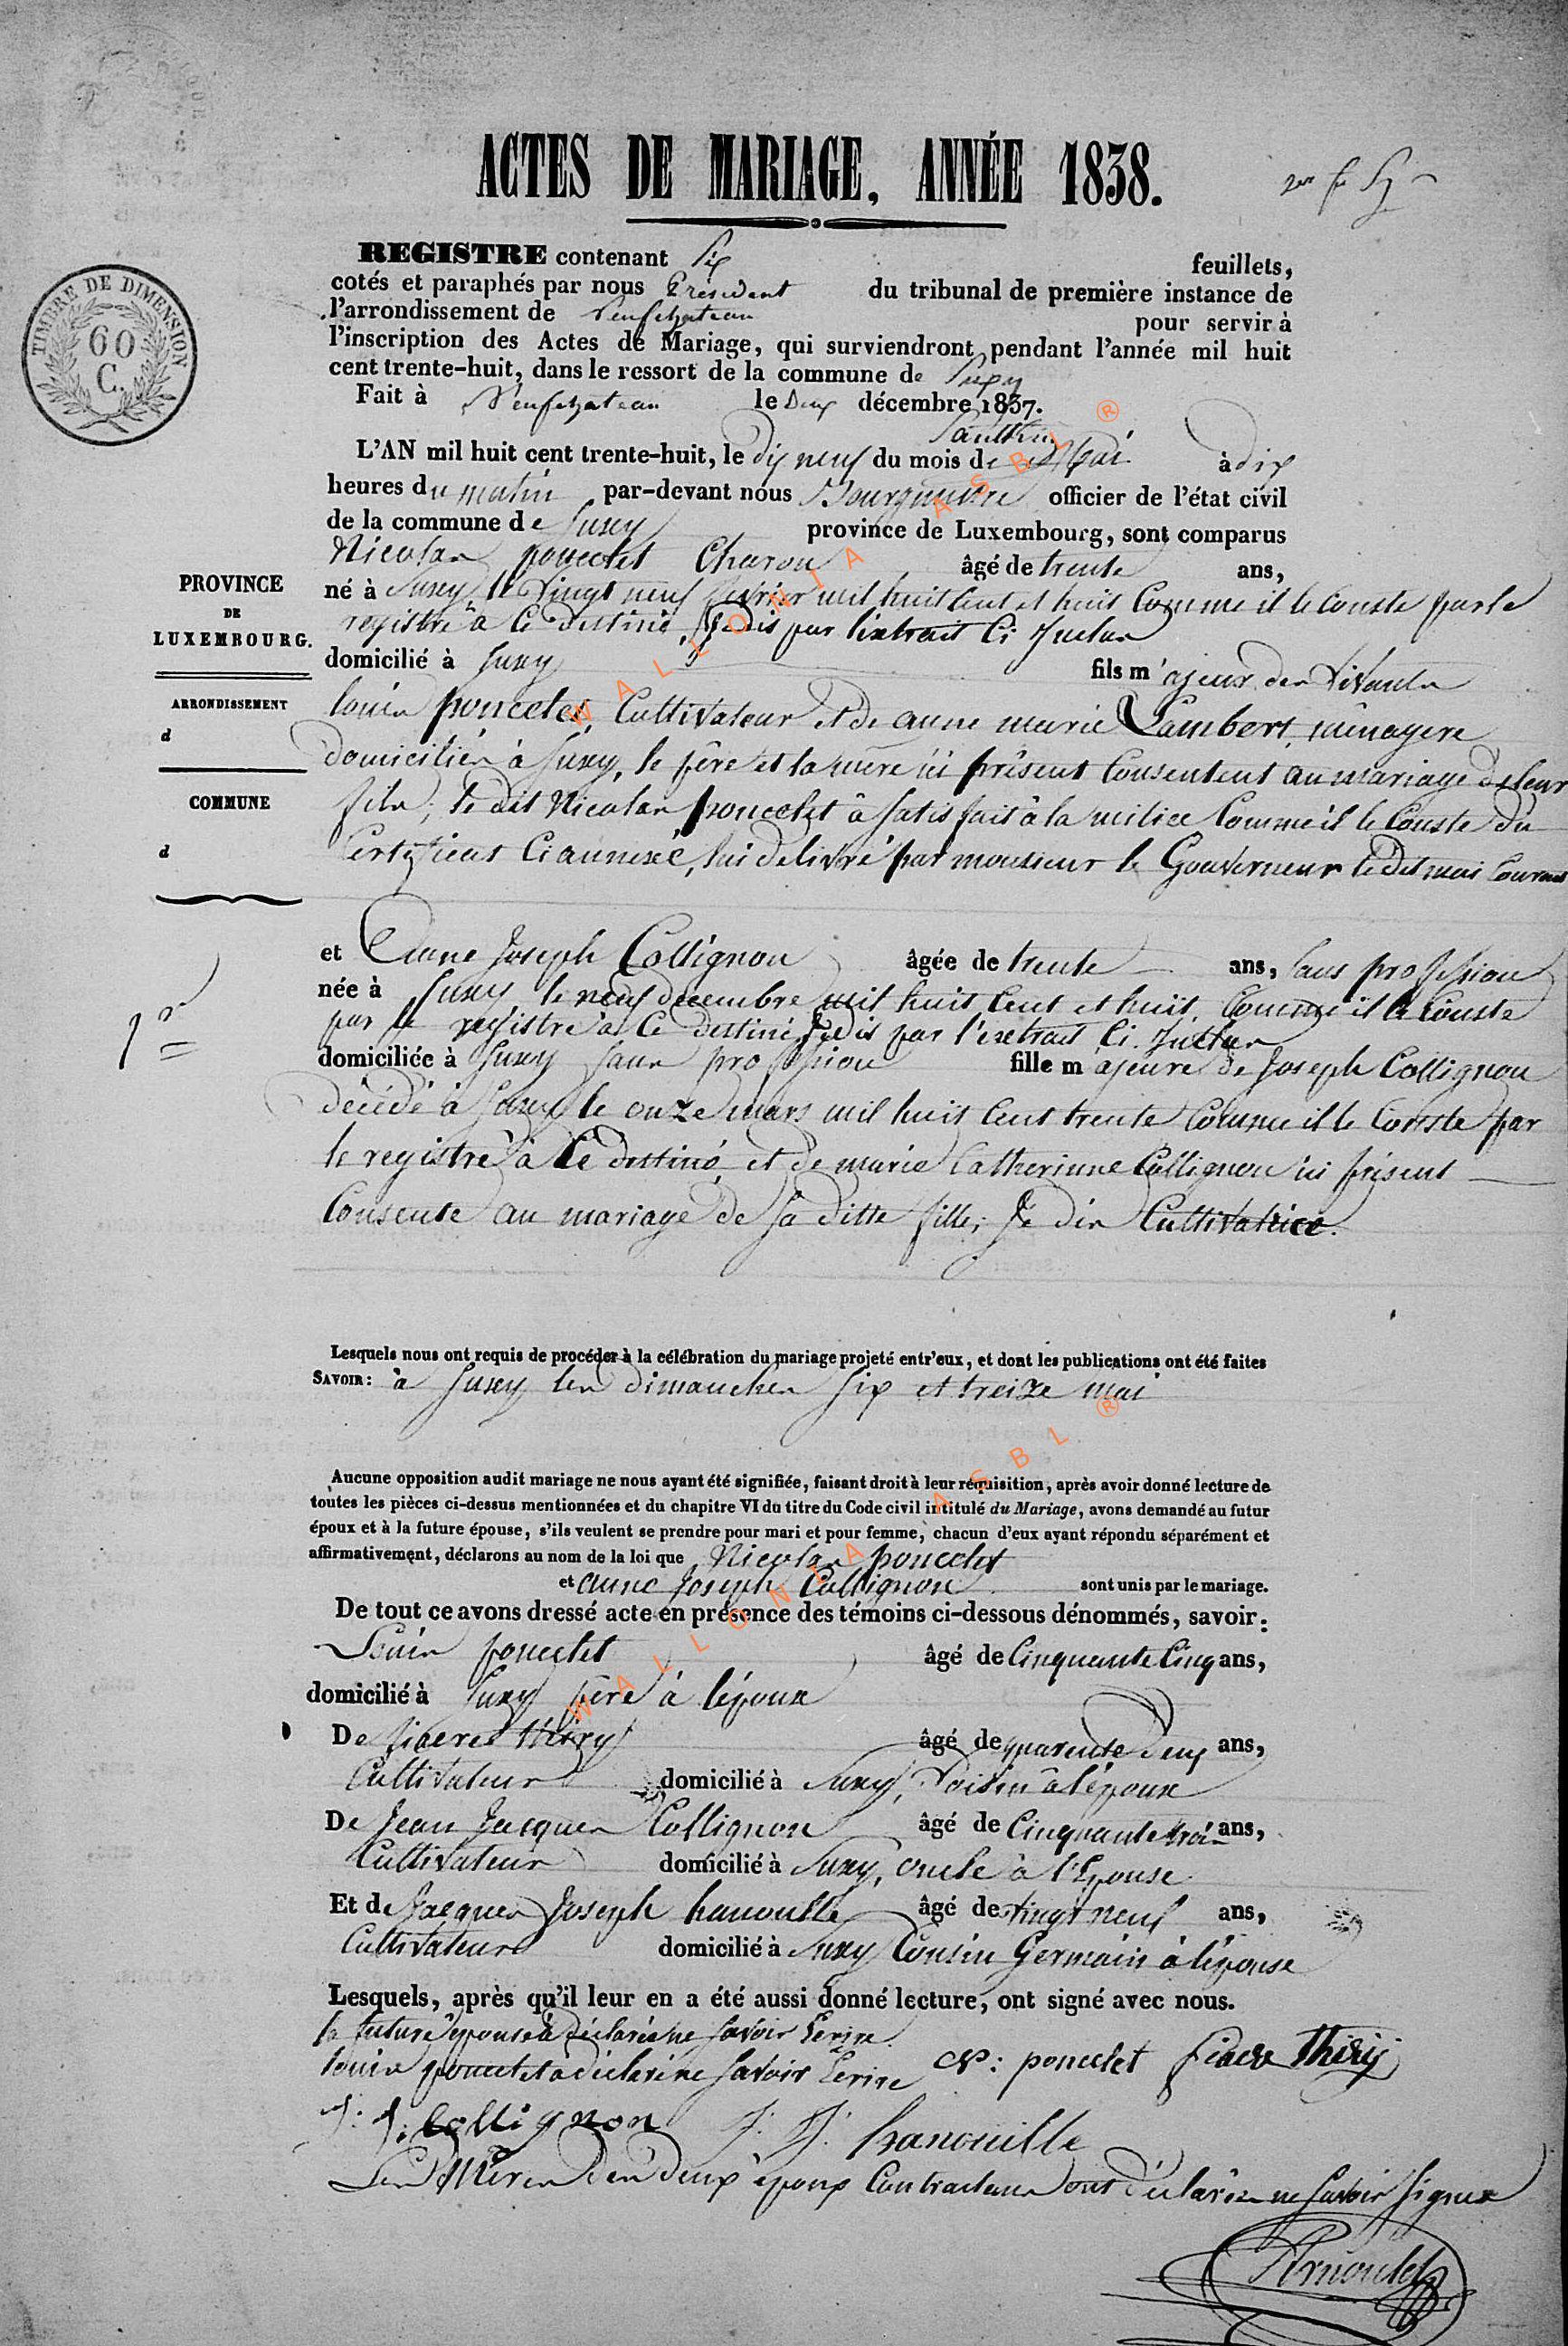 ACTES DE MARIAGE, ANNÉE 1838.
TIMBRE DE DIMENSION
60
C.
REGISTRE contenant Six feuillets,
cotés et paraphés par nous Président du tribunal de première instance de
l'arrondissement de Neufchateau pour servir à
l'inscription des Actes de Mariage, qui surviendront pendant l'année mil huit
cent trente-huit, dans le ressort de la commune de Suxy
Fait à Neufchateau le Deux décembre 1837.
L'AN mil huit cent trente-huit, le dix neuf du mois de Mai à dix
heures du matin par-devant nous Bourguemtre officier de l'état civil
de la commune de Suxy province de Luxembourg, sont comparus
Nicolas poncelet Charon âgé de trente ans,
né à Suxy le vingt neuf fevrier mil huit cent et huit Comme il le Conste par le
registre à Ce destiné, Je dis par l'extrait Ci Juclus
domicilié à Suxy fils majeur des vivants
louis poncelet, Cultivateur et de anne marie Lambert, ménagere
domiciliés à Suxy, le père et la mère ici présent Consentent au mariage de leur
fils; le dit Nicolas poncelet à satisfait à la milice Comme il le Conste du
Certificat Ci annexé, lui delivré par monsieur le Gouverneur le dit mois Courant
PROVINCE
DE
LUXEMBOURG.
ARRONDISSEMENT
d
COMMUNE
d
1r
et Anne Joseph Collignon âgée de trente ans, sans profession
née à Suxy le neuf decembre mil huit Cent et huit, Comme il le Conste
par le registre à Ce destiné, Je dis par l'extrait Ci. Juclus
domiciliée à Suxy sans profession fille majeure de Joseph Collignon
décédé à Suxy le onze mars mil huit Cent trente Comme il le Conste par
le registre à Ce destiné et de marie Catherinne Collignon ici présent
Consente au mariage de sa ditte fille; Je dis Cultivatrice.
Lesquels nous ont requis de procéder à la célébration du mariage projeté entr'eux, et dont les publications ont été faites
SAVOIR: à Suxy les dimanches six et treize mai
Aucune opposition audit mariage ne nous ayant été signifiée, faisant droit à leur réquisition, après avoir donné lecture de
toutes les pièces ci-dessus mentionnées et du chapitre VI du titre du Code civil intitulé du Mariage, avons demandé au futur
époux et à la future épouse, s'ils veulent se prendre pour mari et pour femme, chacun d'eux ayant répondu séparément et
affirmativement, déclarons au nom de la loi que Nicolas poncelet
et anne Joseph Collignon sont unis par le mariage.
De tout ce avons dressé acte en présence des témoins ci-dessous dénommés, savoir:
Louis poncelet âgé de Cinquante Cinq ans,
domicilié à Suxy père à l'époux
De fiacre thiry âgé de quarente deux ans,
Cultivateur domicilié à Suxy, Voisin à l'époux
De Jean Jacques Collignon âgé de Cinquante trois ans,
Cultivateur domicilié à Suxy, oncle à l'Epouse
Et de Jacques Joseph hanouille âgé de vingt neuf ans,
Cultivateur domicilié à Suxy Cousin Germain à l'épouse
Lesquels, après qu'il leur en a été aussi donné lecture, ont signé avec nous.
la future épouse à déclarée ne savoir Ecrire
louis poncelet à déclaré ne savoir Ecrire N: poncelet fiacre Thiry
J: J: Collignon J: J: hanouille
Les Mères des deux époux Contractans ont déclarées ne savoir signer
Arnould
WALLONIA ASBL ®
WALLONIA ASBL ®